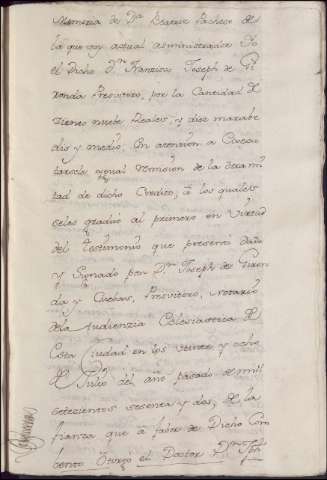 Memoria de D.ª Beatriz Pacheco de
la que soy actual administrador Yo
el Dicho D.n Francisco Joseph de Gi
ronda Presvitero, por la Cantidad de
Ciento nuebe Reales, y diez marabe
dis y medio, En atencion a
tarsele ygual remision de la otra mi
tad de dicho Credito; â los quales
seles graduó al primero en Virtud
del Testimonio que presentó dado
y Signado por D.n Joseph de Giron
da y Cuebas, Presvitero, Notario
de la Audienzia Eclesiastica de
Esta Ciudad en los veinte y ocho
de Julio del año pasado de mil
setecientos sesenta y dos, de la
fianza que à fabor de Dicho Com
bento Otorgó el Doctor D.n Jph